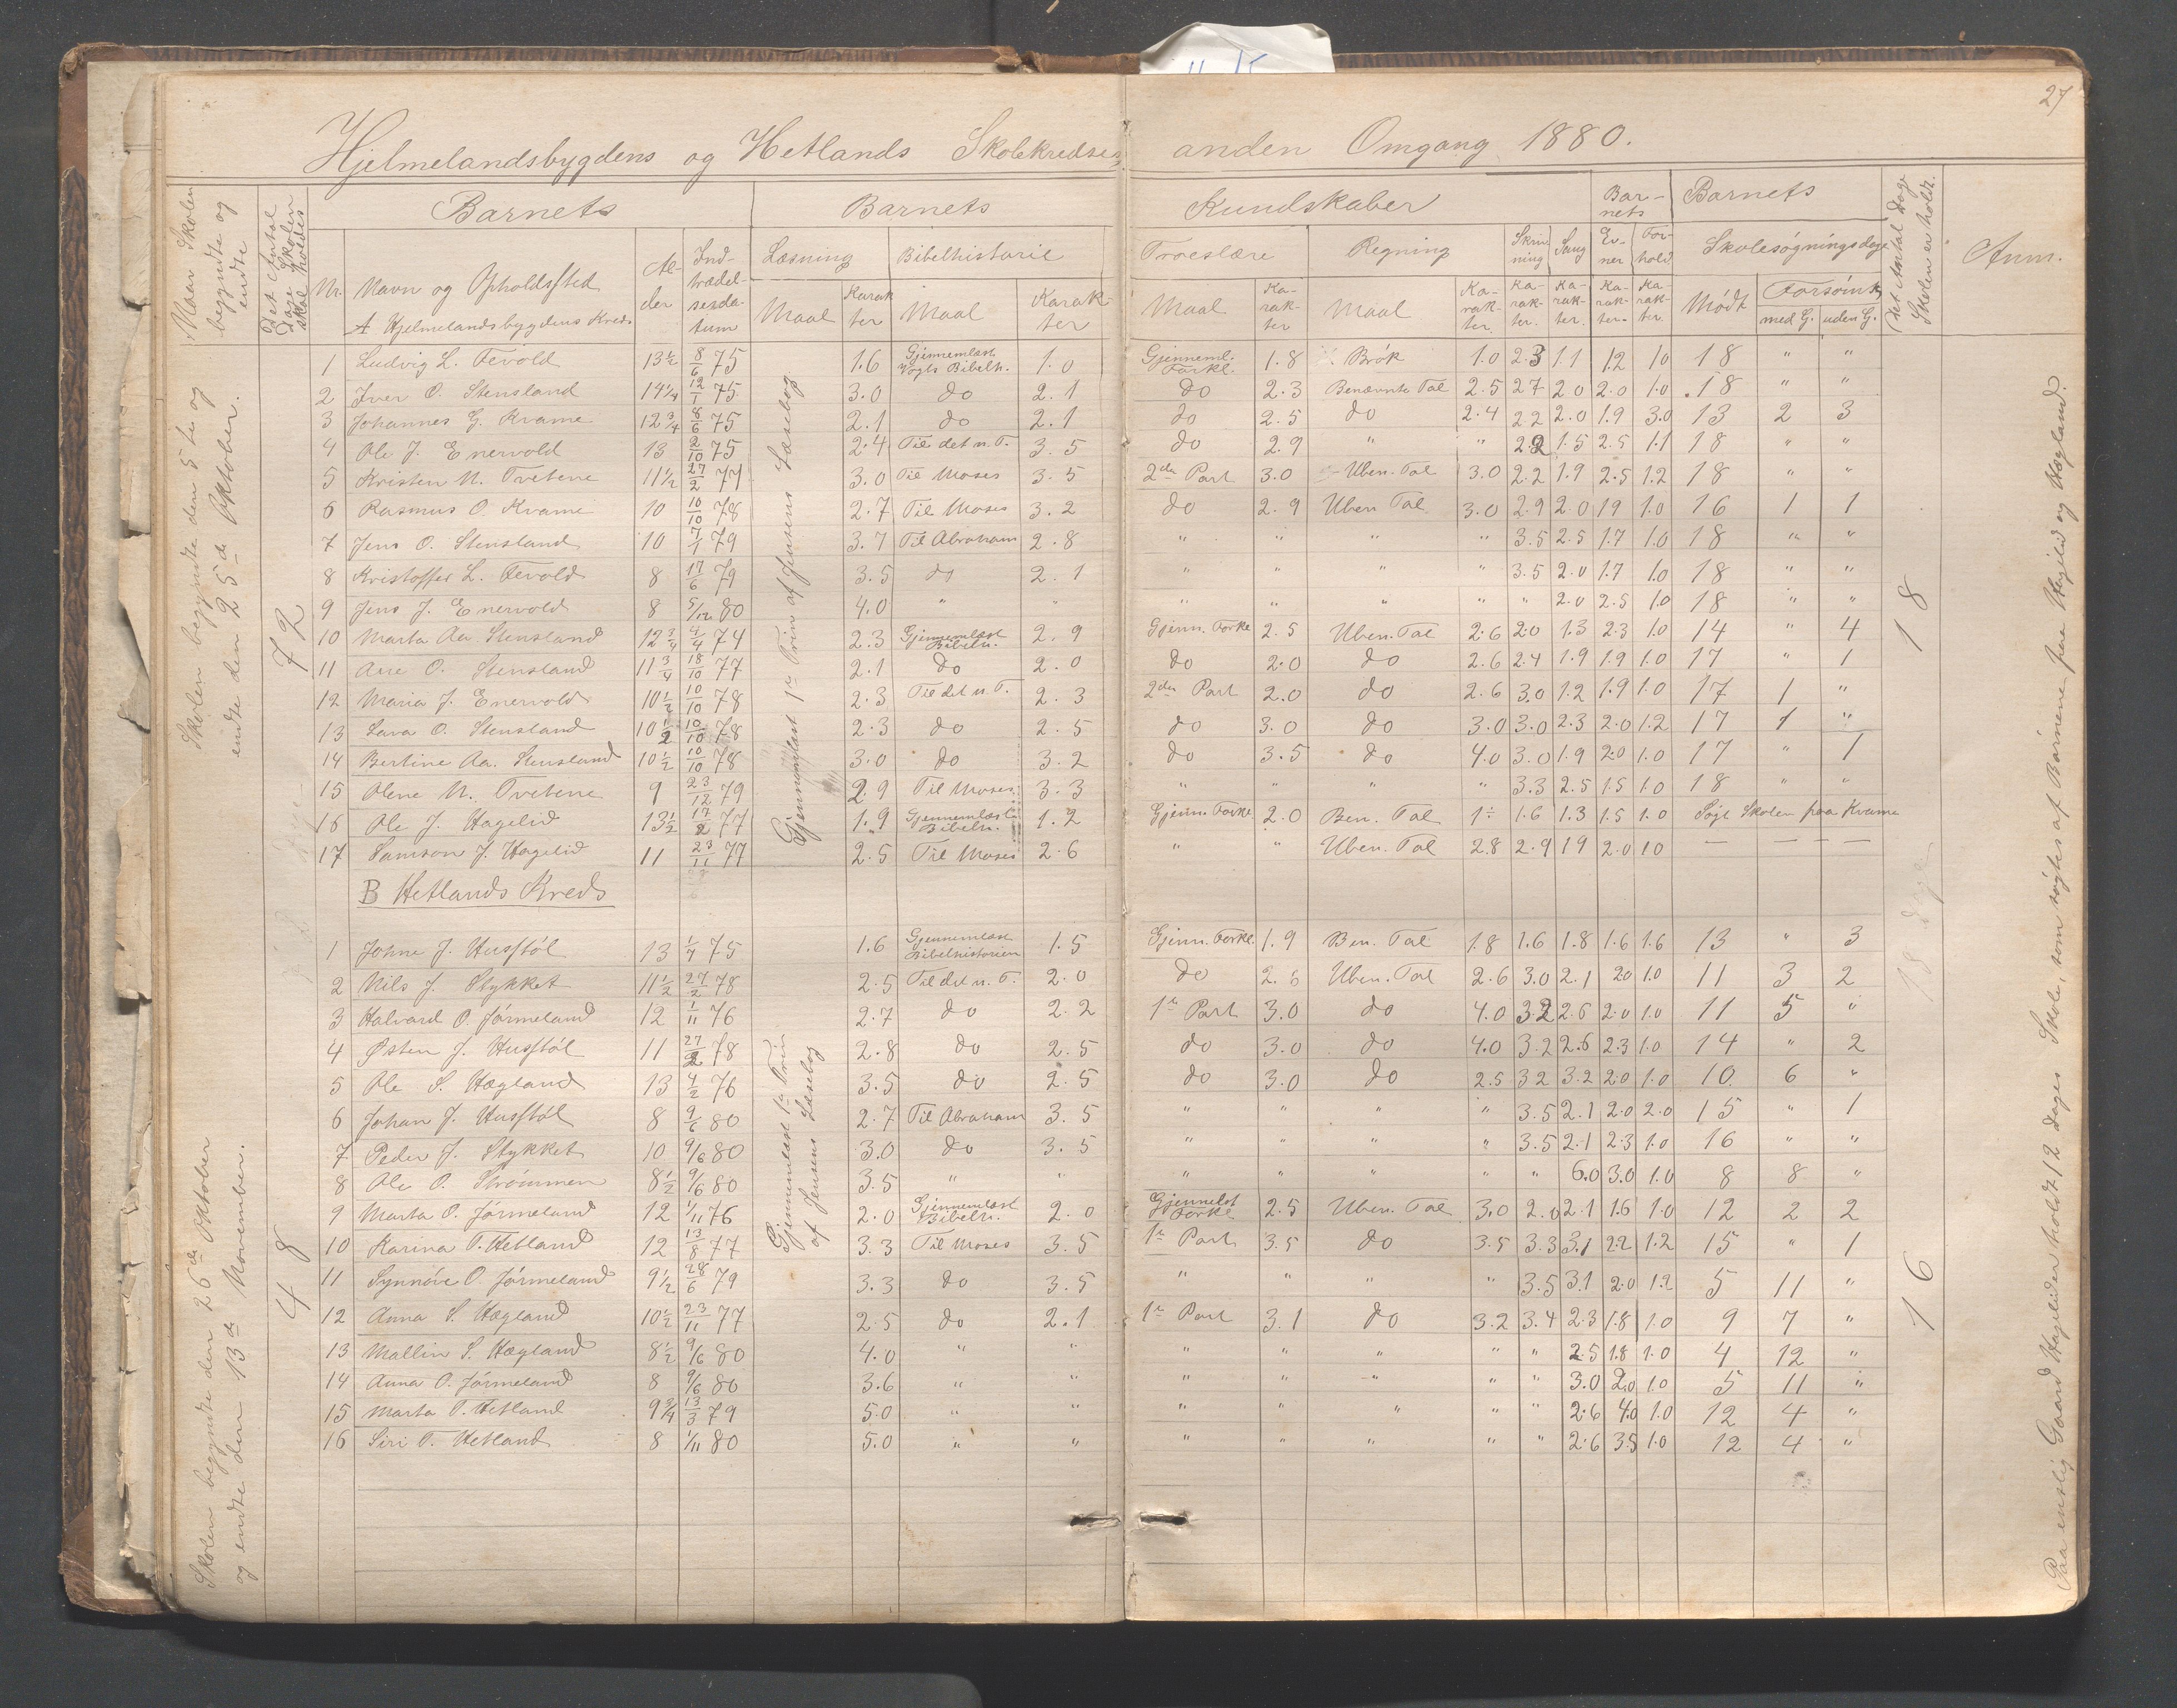 27
Hjelmelandsbygdens og Hetlands Skolekredses anden Omgang 1880.
Naar Skolen begyndte og endte
Det Antal Dage Skolen skal holdes
Barnets
Barnets
Kundskaber
Barnets
Barnets
Det Antal Dage Skolen er holdt.
Anm.
Nr. Navn og Opholdssted Alder Indtrædelsesdatum Læsning Bibelhistorie Troeslære Regning Skrivning Sang Evner Forhold Skolesøgningsdage
A Hjelmelandsbygdens Kreds Maal Karakter Maal Karakter Maal Karakter Maal Karakter. Karakter. Karakter. Karakter. Karakter. Mödt Forsömt med G. uden G.
Skolen begyndte den 5te og endte den 25de Oktober.
72
Gjennemlæst 1ste Trin af Jensens Læsebog
18
1 Ludvig L. Tevold 13½ 8/6 75 1.6 Gjennemlæst Vogts Bibelh. 1.0 Gjenneml. Forkl. 1.8 Brök 1.0 2.3 1.1 1.2 1.0 18 " "
2 Iver O. Stensland 14¼ 12/1 75 3.0 do 2.1 do 2.3 Benævnte Tal 2.5 27 2.0 2.0 1.0 18 " "
3 Johannes G. Kvame 12¾ 8/6 75 2.1 do 2.1 do 2.5 do 2.4 22 2.0 1.9 3.0 13 2 3
4 Ole J. Enervold 13 2/10 75 2.4 Til det n. T. 3.5 do 2.9 " " 2.2 1.5 2.5 1.1 18 " "
5 Kristen N. Tvetene 11½ 27/2 77 3.0 Til Moses 3.5 2den Part 3.0 Uben. Tal 3.0 2.2 1.9 2.5 1.2 18 " "
6 Rasmus O. Kvame 10 10/10 78 2.7 Til Moses 3.2 do 2.9 Uben Tal 3.0 2.9 2.0 19 1.0 16 1 1
7 Jens O. Stensland 10 7/1 79 3.7 Til Abraham 2.8 " " " " 3.5 2.5 1.7 1.0 18 " "
8 Kristoffer L. Tevold 8 17/6 79 3.5 do 2.1 " " " " 3.5 2.0 1.7 1.0 18 " "
9 Jens J. Enervold 8 5/12 80 4.0 " " " " " " " 2.0 2.5 1.0 18 " "
10 Marta Aa. Stensland 12¾ 4/4 74 2.3 Gjennemlæst Bibelh. 2.9 Gjenn. Forkl 2.5 Uben. Tal 2.6 2.0 1.3 2.3 1.0 14 " 4
11 Ane O. Stensland 11¾ 18/10 77 2.1 do 2.0 do 2.0 do 2.6 2.4 1.9 1.9 1.0 17 " 1
12 Maria J. Enervold 10½ 10/10 78 2.3 Til det n. T. 2.3 2den Part 2.0 do 2.6 3.0 1.2 1.9 1.0 17 1 "
13 Lava O. Stensland 10½ 10/10 78 2.3 do 2.5 do 3.0 do 3.0 3.0 2.3 2.0 1.2 17 1 "
14 Bertine Aa. Stensland 10½ 10/10 78 3.0 do 3.2 do 3.5 do 4.0 3.0 1.9 2.0 1.0 17 " 1
15 Olene N. Tvetene 9 23/12 79 2.9 Til Moses 3.3 " " " " 3.3 2.5 1.5 1.0 18 " "
16 Ole J. Hagelid 13½ 17/2 77 1.9 Gjennemlæst Bibelh. 1.2 Gjenn. Forkl 2.0 Ben. Tal 1 1.6 1.3 1.5 1.0 Sögt Skolen paa Kvame
17 Samson J. Hagelid 11 23/11 77 2.5 Til Moses 2.6 " " Uben. Tal 2.8 2.9 19 2.0 10 — — — —
B Hetlands Kreds
18 dage
Skolen begyndte den 26de Oktober og endte den 13de November.
48
Gjennemlæst 1ste Trin af Jensens Læsebog
16
1 Johne J. Husstöl 13 1/7 75 1.6 Gjennemlæst Bibelhistorien 1.5 Gjenn. Forkl. 1.9 Ben. Tal 1.8 1.6 1.8 1.6 1.6 13 " 3
2 Nils J. Stykket 11½ 27/2 78 2.5 Til det n. T. 2.0 do 2.6 Uben. Tal 2.6 3.0 2.1 20 1.0 11 3 2
3 Halvard O. Jörmeland 12 1/11 76 2.7 do 2.2 1ste Part 3.0 do 4.0 3.2 2.6 2.0 1.0 11 5 "
4 Østen J. Husstöl 11 27/2 78 2.8 do 2.5 do 3.0 do 4.0 3.2 2.6 2.3 1.0 14 " 2
5 Ole S. Hægland 13 4/2 76 3.5 do 2.5 do 3.0 do 2.5 32 3.2 2.0 1.0 10 6 "
6 Johan J. Husstöl 8 9/6 80 2.7 Til Abraham 3.5 " " " " 3.5 2.1 2.0 2.0 15 " 1
7 Peder J. Stykket 10 9/6 80 3.0 do 3.5 " " " " 3.5 2.1 2.3 1.0 16 " "
8 Ole O. Strömmen 8½ 9/6 80 3.5 " " " " " " " 6.0 3.0 1.0 8 8 "
9 Marta O. Jörmeland 12 1/11 76 2.0 Gjennemlæst Bibelh. 2.0 Gjennelst Forkl 2.5 Uben. Tal 3.0 2.0 2.1 1.6 1.0 12 2 2
10 Karina T. Hetland 12 13/8 77 3.3 Til Moses 3.5 1ste Part 3.5 do 3.5 3.3 3.1 2.2 1.2 15 " 1
11 Synnöve O. Jörmeland 9½ 28/6 79 3.3 do 3.5 " " " " 3.5 3.1 2.0 1.2 5 11 "
12 Anna S. Hægland 10½ 23/11 77 2.5 do 2.1 1ste Part 3.1 do 3.2 3.4 2.3 1.8 1.0 9 7 "
13 Mallin S. Hægland 8½ 9/6 80 4.0 " " " " " " " 2.5 1.8 1.0 4 12 "
14 Anna O. Jörmeland 8 9/6 80 3.6 " " " " " " " 3.0 2.0 1.0 5 11 "
15 Marta T. Hetland 9¾ 13/3 79 5.0 " " " " " " " 2.6 4.0 1.0 12 4 "
16 Siri T. Hetland 8 1/11 80 5.0 " " " " " " " 2.6 3.5 1.0 12 4 "
Paa enslig Gaard Hagelider holdt 12 Dages Skole, som søgtes af Børnene paa Hagelid og Hægland.